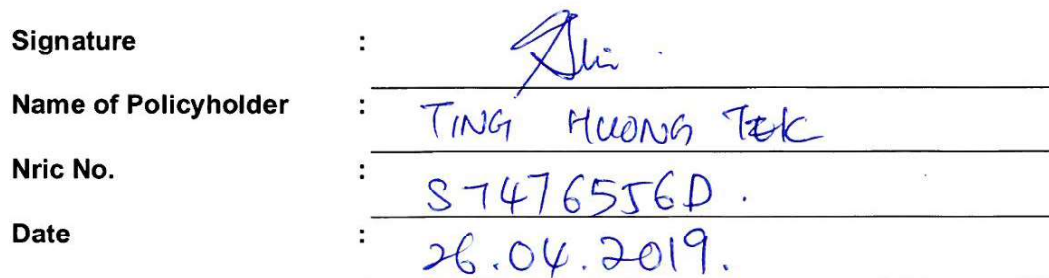 Signature :
Name of Policyholder : TING HUONG TEK
Nric No. : S7476556D.
Date : 26.04.2019.